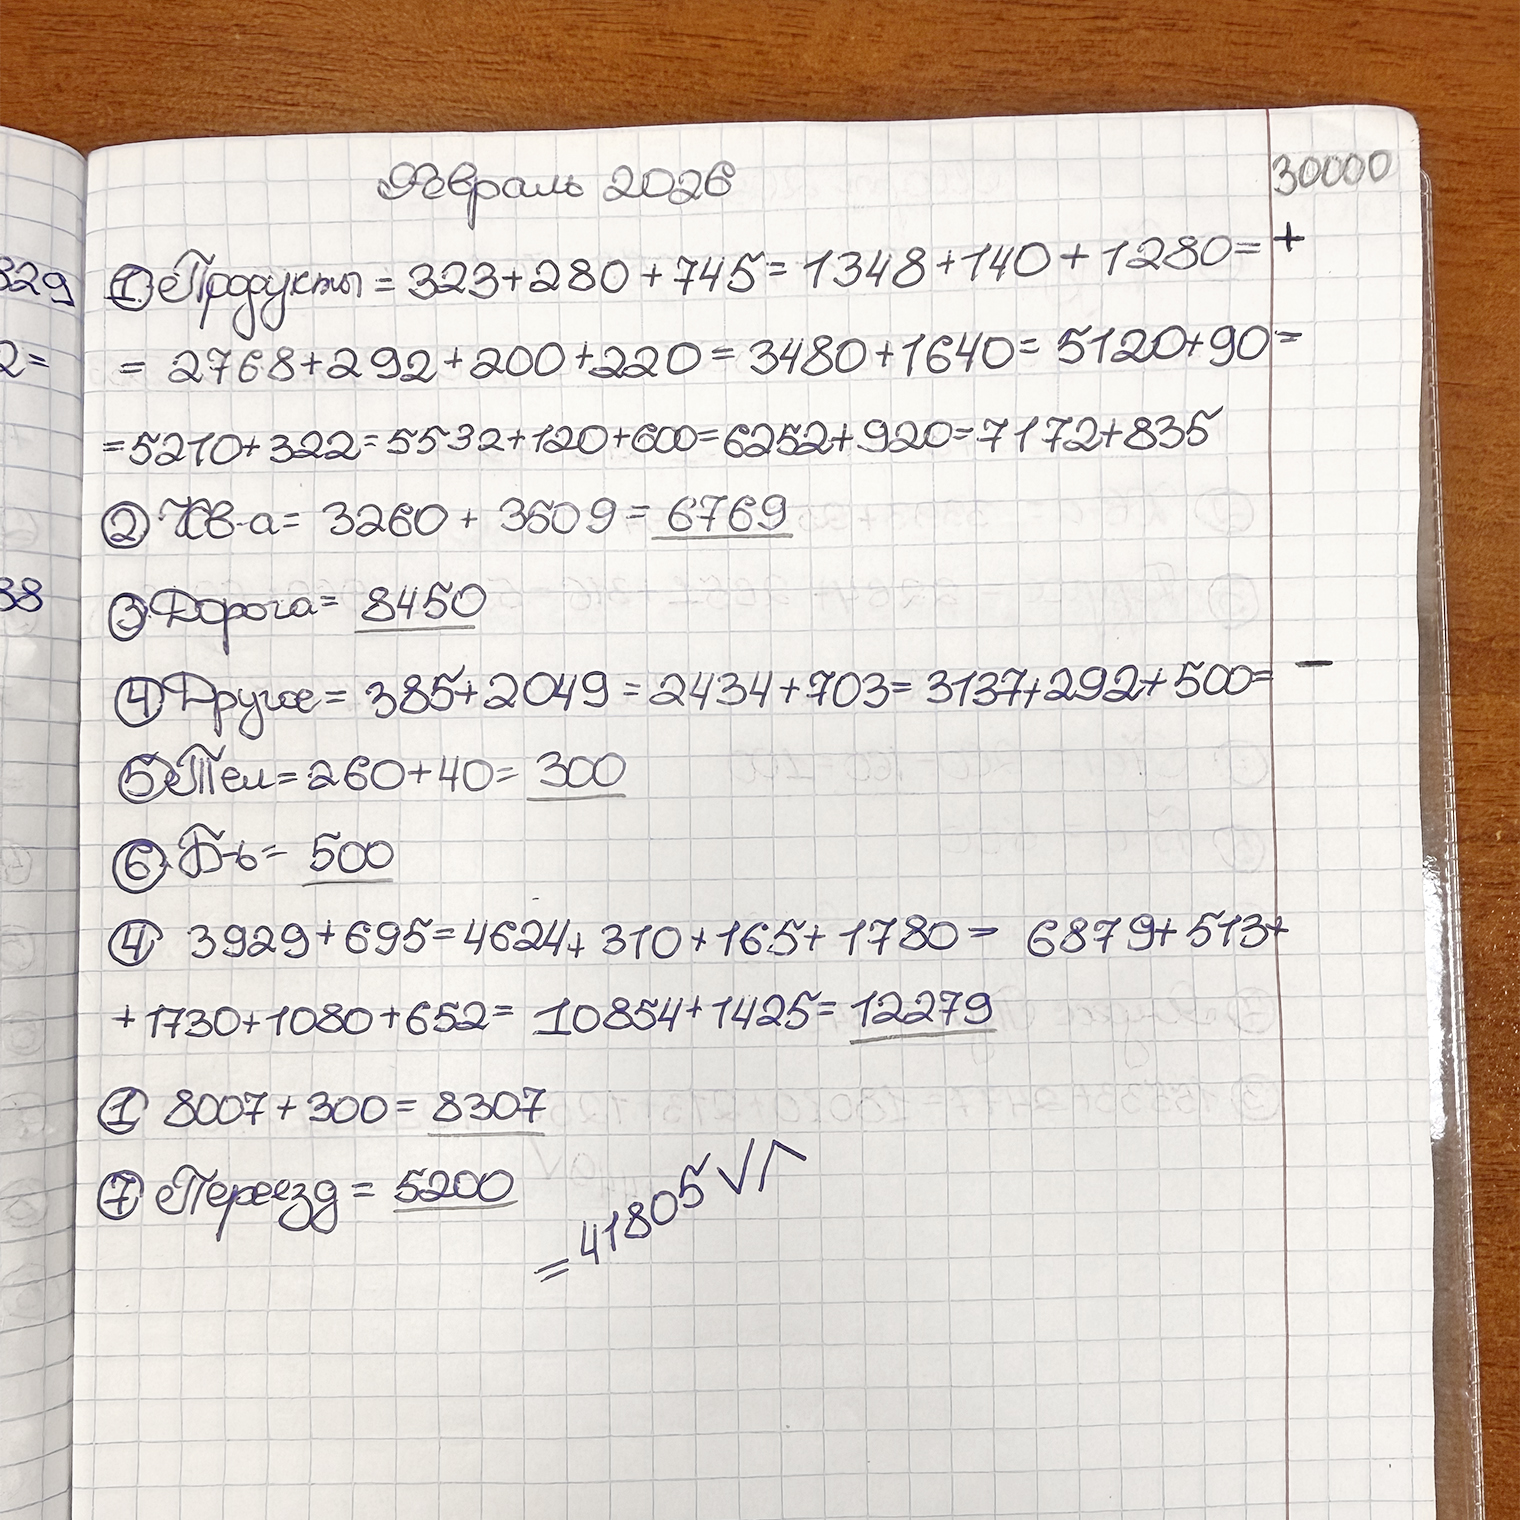 Февраль 2026
30000
① Продукты = 323+280+745= 1348+140+1280= +
= 2768+292+200+220= 3480+1640= 5120+90=
=5210+322=5532+120+600=6252+920=7172+835
② Кв-а= 3260+ 3509= 6769
③ Дорога= 8450
④ Другое= 385+2049=2434+703=3137+292+500= –
⑤ Тел=260+40= 300
⑥ Б-ь= 500
④ 3929+695=4624+310+165+1780= 6879+513+
+1730+1080+652= 10854+1425= 12279
① 8007+300= 8307
⑦ Переезд = 5200
= 41805 √
329
2=
38